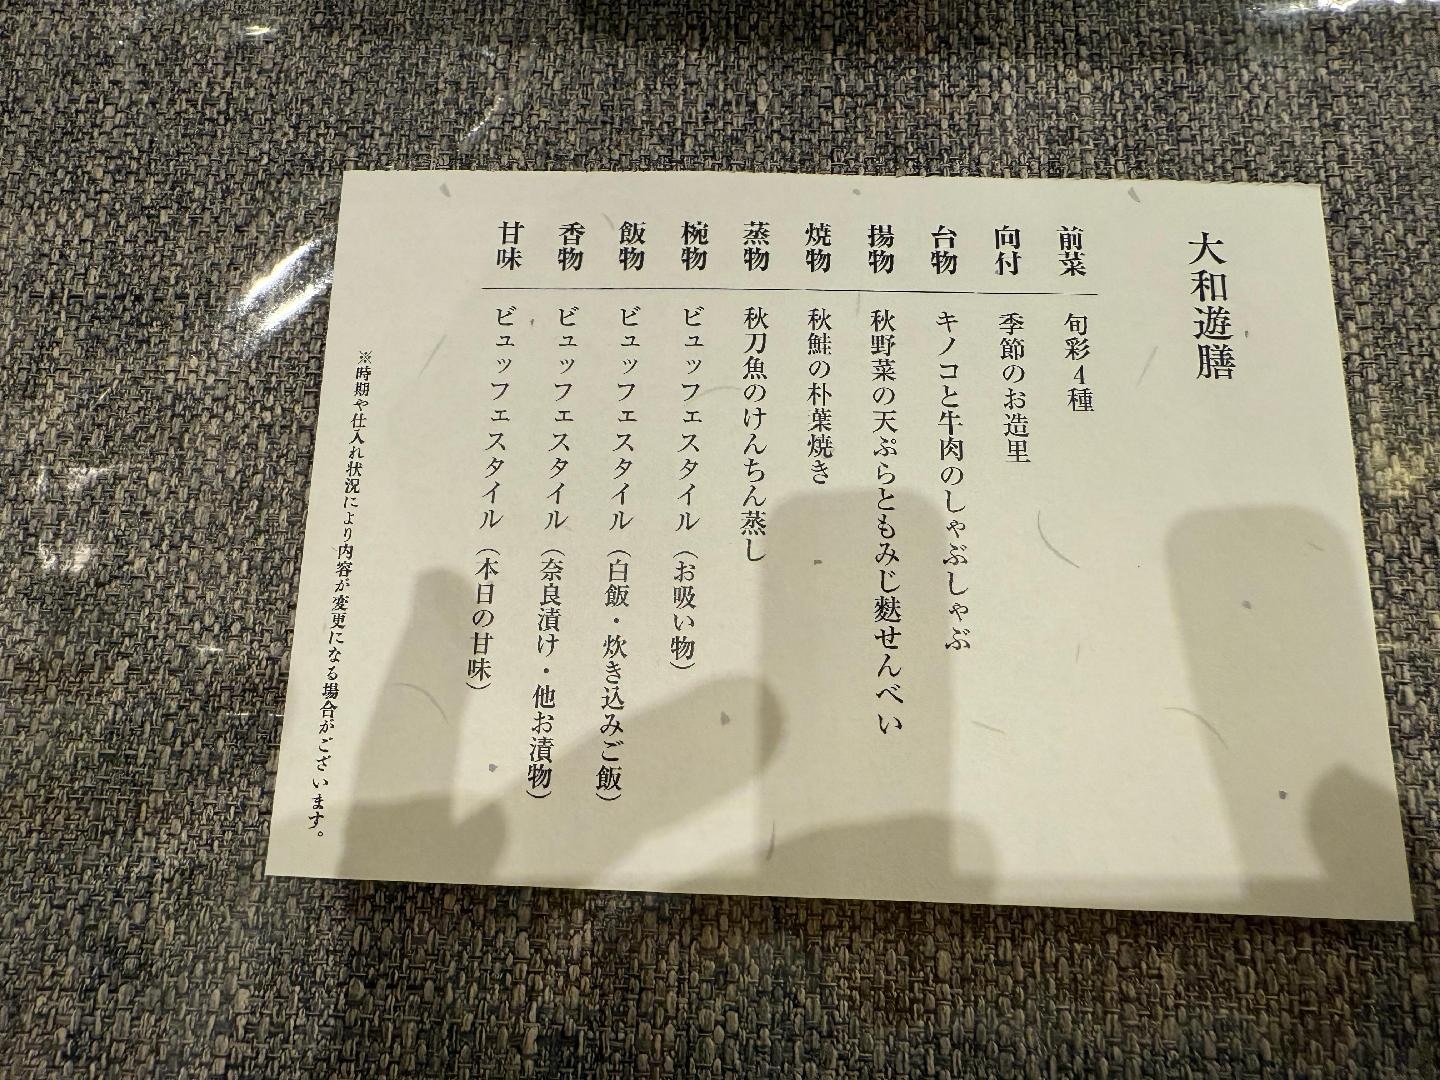 大和遊膳
前菜 旬彩4種
向付 季節のお造里
台物 キノコと牛肉のしゃぶしゃぶ
揚物 秋野菜の天ぷらともみじ麩せんべい
焼物 秋鮭の朴葉焼き
蒸物 秋刀魚のけんちん蒸し
椀物 ビュッフェスタイル（お吸い物）
飯物 ビュッフェスタイル（白飯・炊き込みご飯）
香物 ビュッフェスタイル（奈良漬け・他お漬物）
甘味 ビュッフェスタイル（本日の甘味）
※時期や仕入れ状況により内容が変更になる場合がございます。